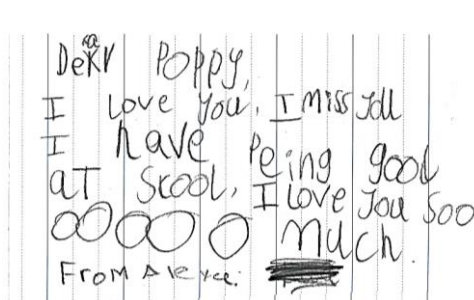 Dear Poppy,
I Love you. I miss you
I have Peing good
aT Scool. I Love you Soo
OOOOO Much.
From